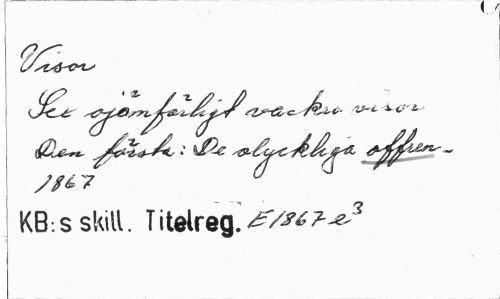 Visor
Sex ojämförligt vackra visor
Den första: De olyckliga offren.
1867
KB:s skill. Titelreg. E 1867 e³